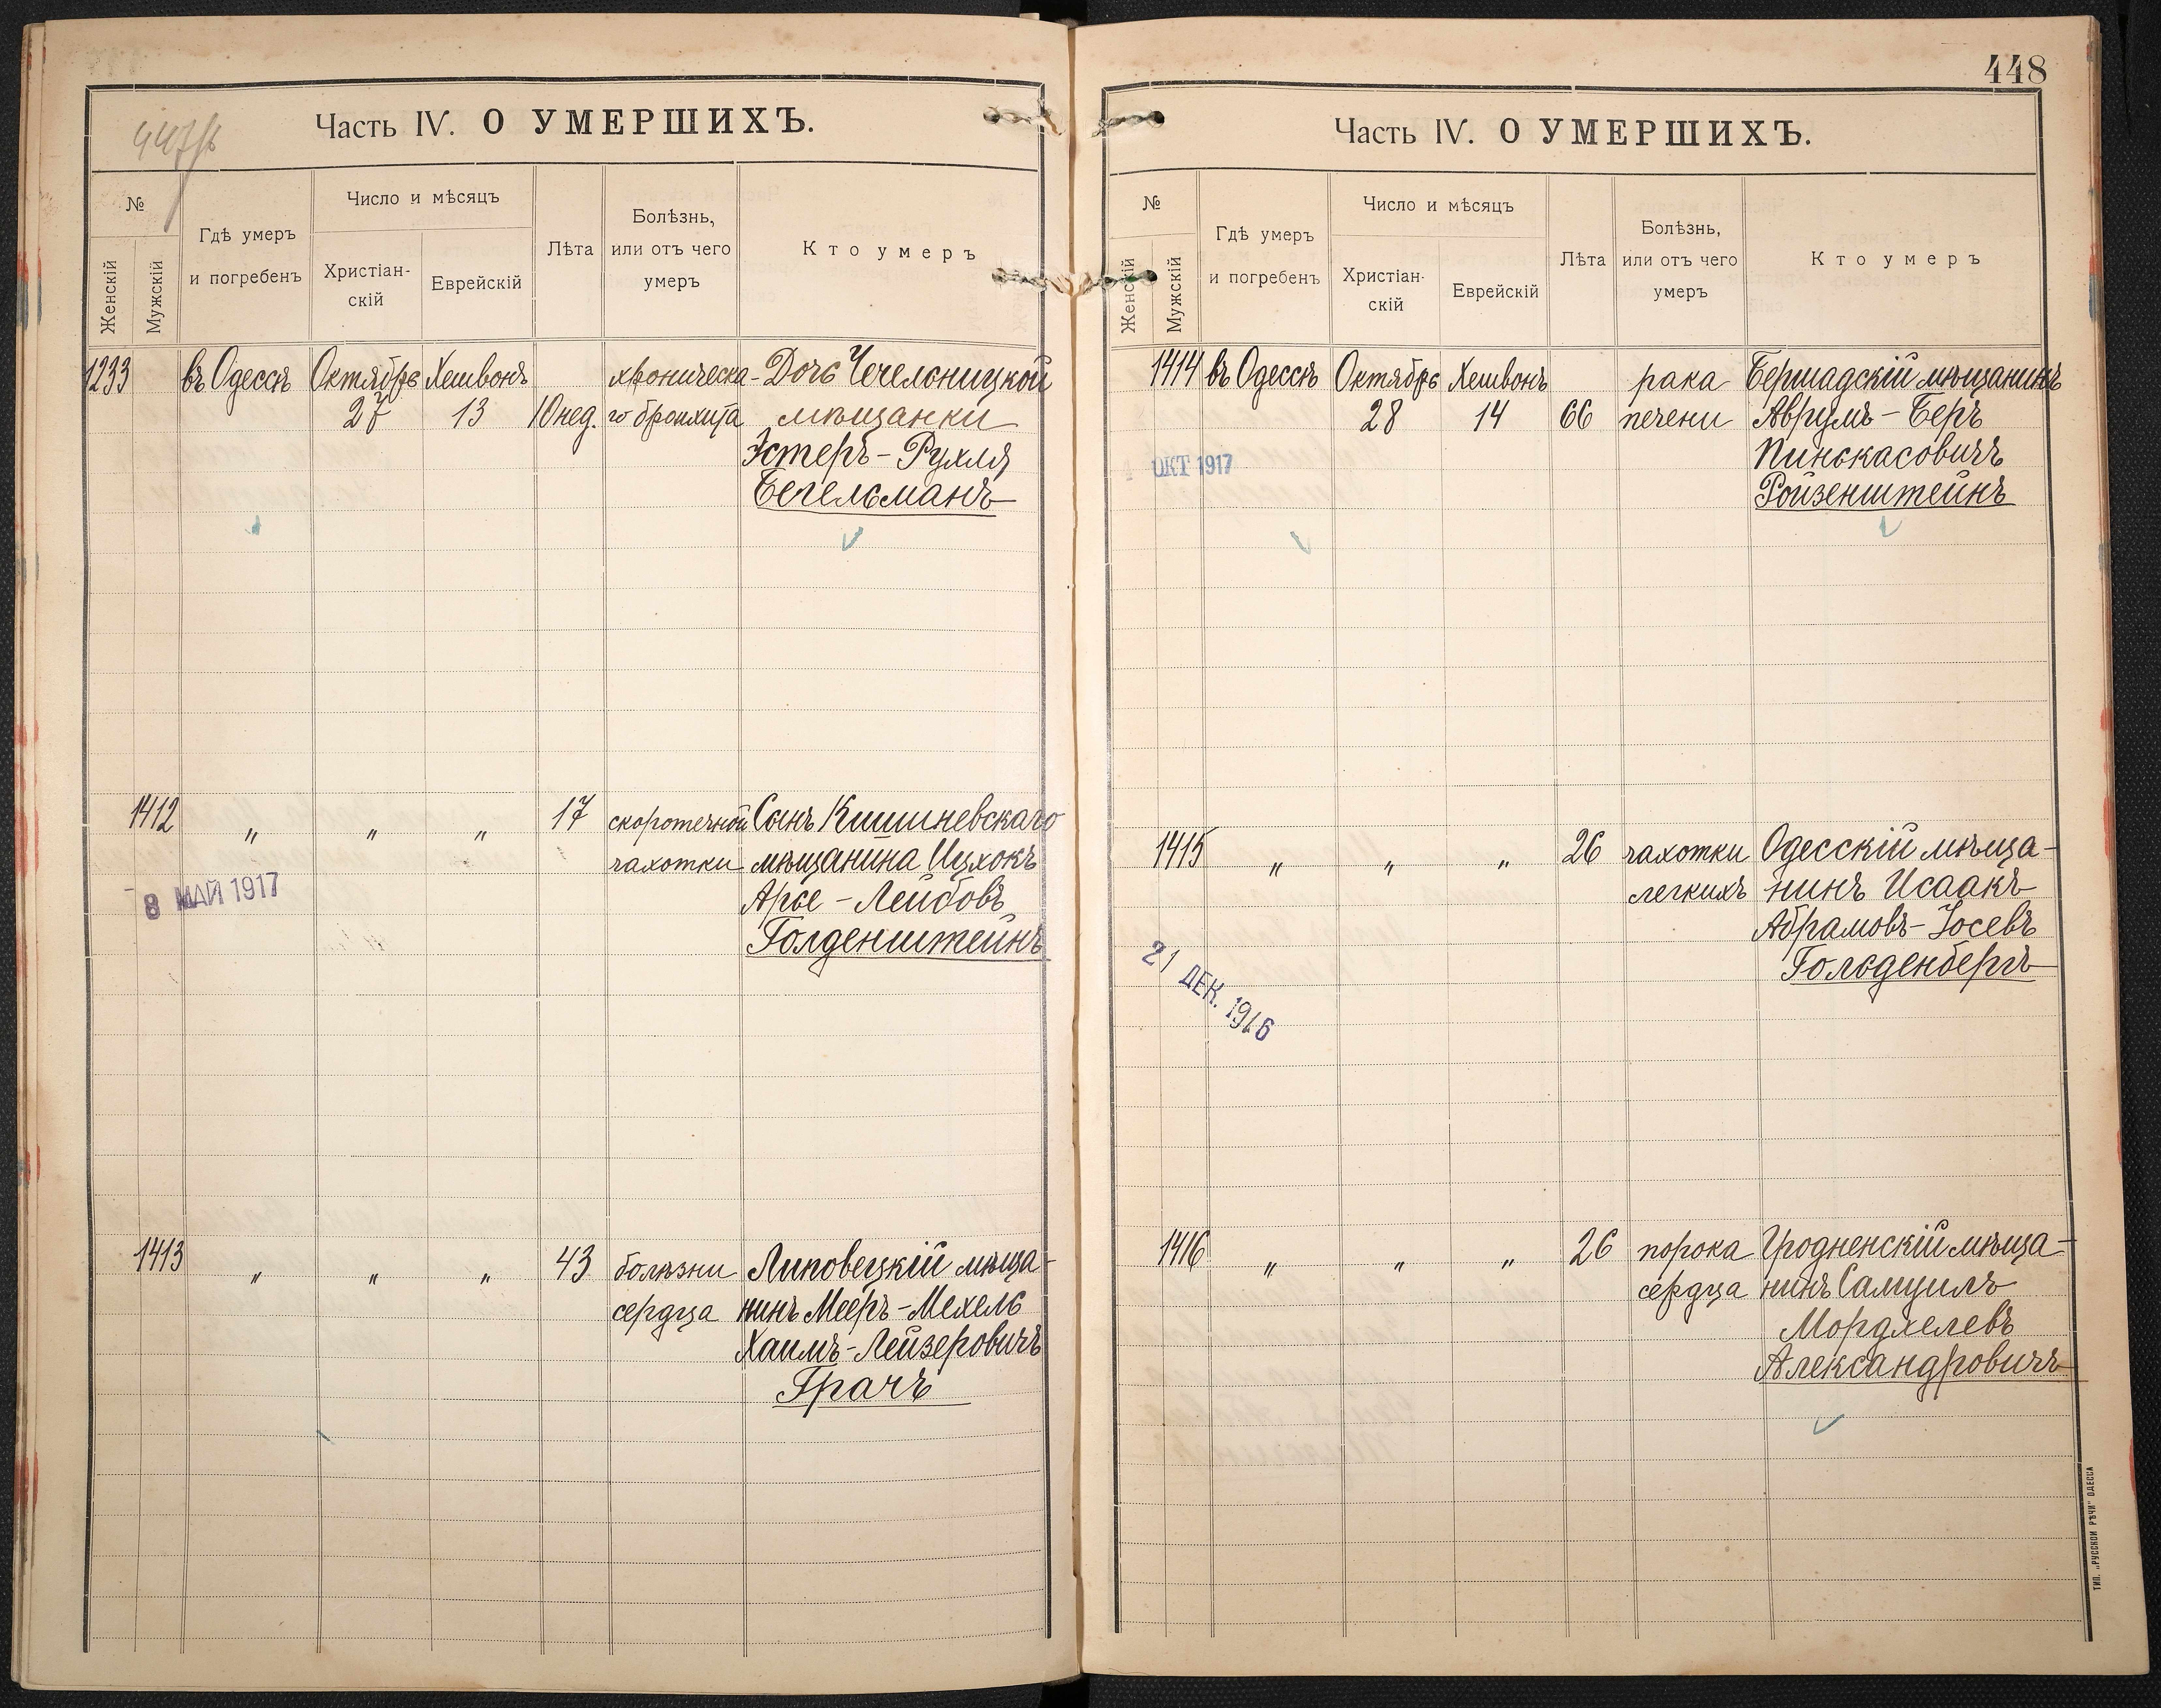 447/б
Часть IV. О УМЕРШИХЪ.
№
Женскій
Мужскій
Гдѣ умеръ
и погребенъ
Число и мѣсяцъ
Христіан-
скій
Еврейскій
Лѣта
Болѣзнь,
или отъ чего
умеръ
Кто умеръ
1233 въ Одессѣ Октябрь Хешвонъ хроническа- Дочь Чечельницкой
27 13 10 нед. го бронхита мѣщанки
Эстеръ-Рухля
Бегельманъ
1412 „ „ „ 17 скоротечной Сынъ Кишиневскаго
чахотки мѣщанина Ицхокъ
8 МАЙ 1917 Арье-Лейбовъ
Голденштейнъ
1413 „ „ „ 43 болѣзни Липовецкій мѣща-
сердца нинъ Мееръ-Мехель
Хаимъ-Лейзеровичъ
Грачъ
448
Часть IV. О УМЕРШИХЪ.
№
Женскій
Мужскій
Гдѣ умеръ
и погребенъ
Число и мѣсяцъ
Христіан-
скій
Еврейскій
Лѣта
Болѣзнь,
или отъ чего
умеръ
Кто умеръ
1414 въ Одессѣ Октябрь Хешвонъ рака Бершадскій мѣщанинъ
28 14 66 печени Аврумъ-Беръ
ОКТ 1917 Пинскасовичъ
Ройзенштейнъ
1415 „ „ „ 26 чахотки Одесскій мѣща-
легкихъ нинъ Исаакъ
Абрамовъ-Іосевъ
21 ДЕК. 1916 Гольденбергъ
1416 „ „ „ 26 порока Гродненскій мѣща-
сердца нинъ Самуилъ
Мордхелевъ
Александровичъ
ТИП. „РУССКОЙ РѢЧИ" ОДЕССА